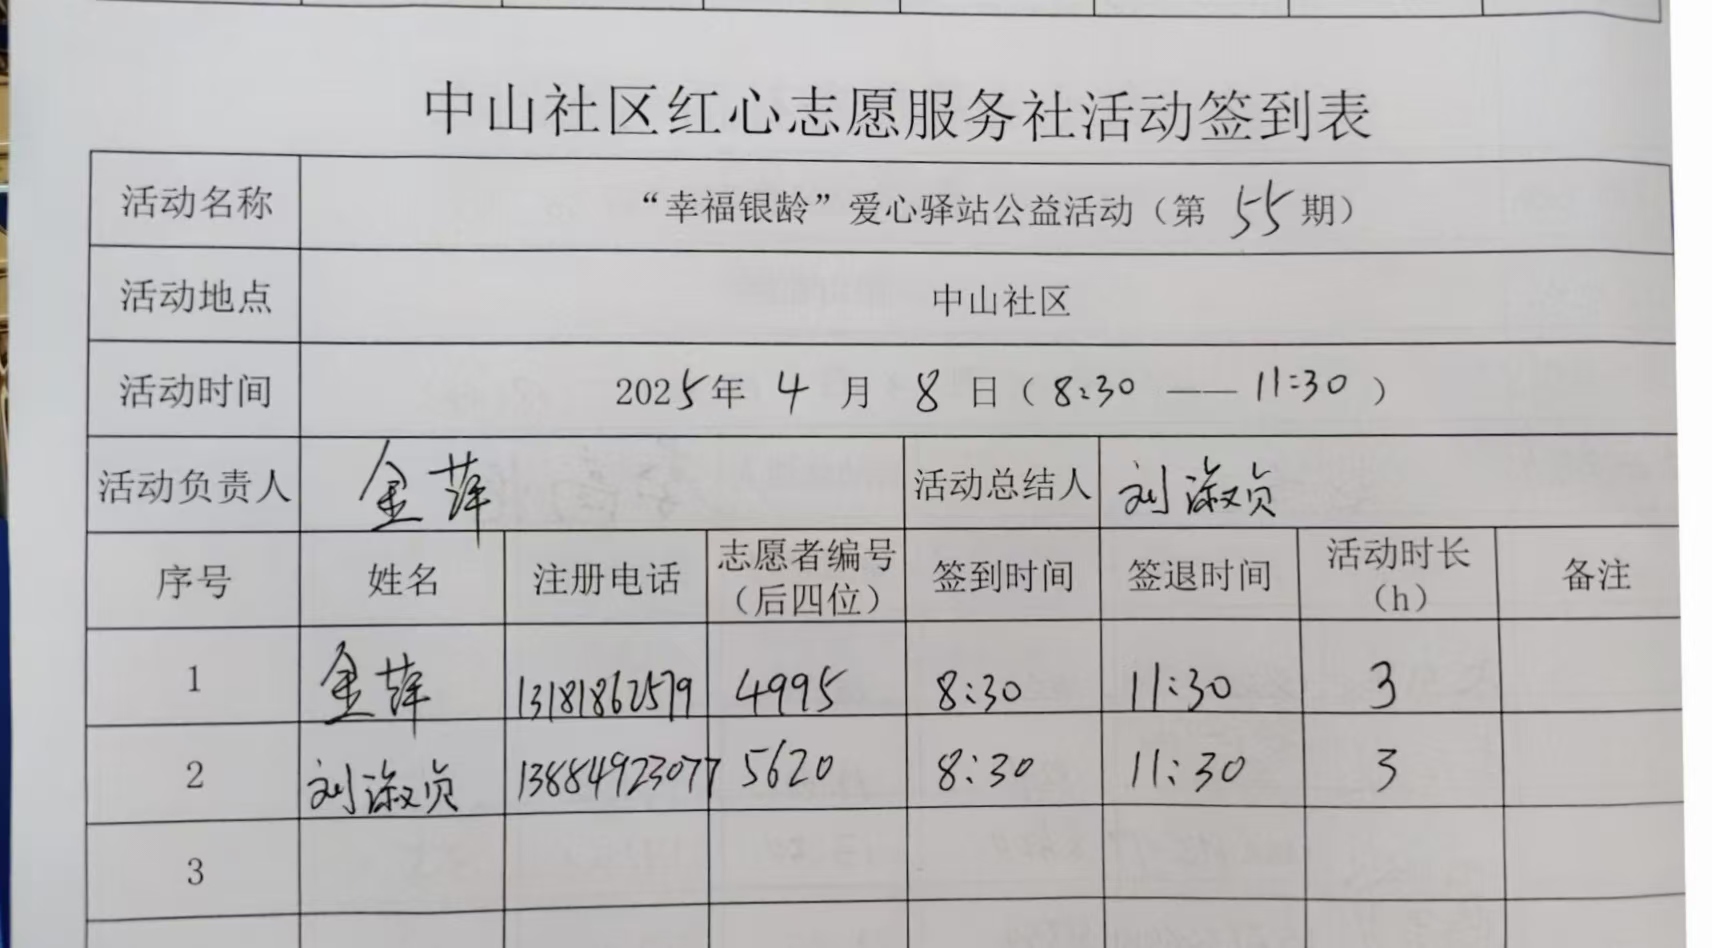 中山社区红心志愿服务社活动签到表
活动名称 “幸福银龄”爱心驿站公益活动（第 55 期）
活动地点 中山社区
活动时间 2025年 4 月 8 日（8:30 —— 11:30）
活动负责人 金萍 活动总结人 刘淑贞
序号 姓名 注册电话 志愿者编号（后四位） 签到时间 签退时间 活动时长（h） 备注
1 金萍 13181862579 4995 8:30 11:30 3
2 刘淑贞 13884923077 5620 8:30 11:30 3
3